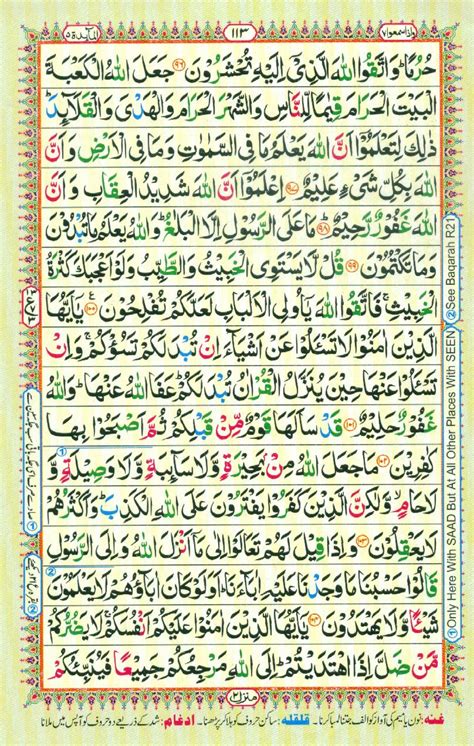 واذاسمعوا۷
۱۱۳
المآئدة۵
حُرُمًا ؕ وَاتَّقُوا اللّٰهَ الَّذِيْۤ اِلَيْهِ تُحْشَرُوْنَ ﴿۹۶﴾ جَعَلَ اللّٰهُ الْكَعْبَةَ
الْبَيْتَ الْحَرَامَ قِيٰمًا لِّلنَّاسِ وَالشَّهْرَ الْحَرَامَ وَالْهَدْيَ وَالْقَلَآئِدَ ؕ
ذٰلِكَ لِتَعْلَمُوْۤا اَنَّ اللّٰهَ يَعْلَمُ مَا فِي السَّمٰوٰتِ وَمَا فِي الْاَرْضِ وَاَنَّ
اللّٰهَ بِكُلِّ شَيْءٍ عَلِيْمٌ ﴿۹۷﴾ اِعْلَمُوْۤا اَنَّ اللّٰهَ شَدِيْدُ الْعِقَابِ وَاَنَّ
اللّٰهَ غَفُوْرٌ رَّحِيْمٌ ﴿۹۸﴾ مَا عَلَى الرَّسُوْلِ اِلَّا الْبَلٰغُ ؕ وَاللّٰهُ يَعْلَمُ مَا تُبْدُوْنَ
وَمَا تَكْتُمُوْنَ ﴿۹۹﴾ قُلْ لَّا يَسْتَوِي الْخَبِيْثُ وَالطَّيِّبُ وَلَوْ اَعْجَبَكَ كَثْرَةُ
الْخَبِيْثِ ۚ فَاتَّقُوا اللّٰهَ يٰۤاُولِي الْاَلْبَابِ لَعَلَّكُمْ تُفْلِحُوْنَ ﴿۱۰۰﴾ يٰۤاَيُّهَا
الَّذِيْنَ اٰمَنُوْا لَا تَسْـَٔلُوْا عَنْ اَشْيَآءَ اِنْ تُبْدَ لَكُمْ تَسُؤْكُمْ ۚ وَاِنْ
تَسْـَٔلُوْا عَنْهَا حِيْنَ يُنَزَّلُ الْقُرْاٰنُ تُبْدَ لَكُمْ ؕ عَفَا اللّٰهُ عَنْهَا ؕ وَاللّٰهُ
غَفُوْرٌ حَلِيْمٌ ﴿۱۰۱﴾ قَدْ سَاَلَهَا قَوْمٌ مِّنْ قَبْلِكُمْ ثُمَّ اَصْبَحُوْا بِهَا
كٰفِرِيْنَ ﴿۱۰۲﴾ مَا جَعَلَ اللّٰهُ مِنْۢ بَحِيْرَةٍ وَّلَا سَآئِبَةٍ وَّلَا وَصِيْلَةٍ وَّ
لَا حَامٍ ۙ وَّلٰكِنَّ الَّذِيْنَ كَفَرُوْا يَفْتَرُوْنَ عَلَى اللّٰهِ الْكَذِبَ ؕ وَاَكْثَرُهُمْ
لَا يَعْقِلُوْنَ ﴿۱۰۳﴾ وَاِذَا قِيْلَ لَهُمْ تَعَالَوْا اِلٰى مَاۤ اَنْزَلَ اللّٰهُ وَاِلَى الرَّسُوْلِ
قَالُوْا حَسْبُنَا مَا وَجَدْنَا عَلَيْهِ اٰبَآءَنَا ؕ اَوَلَوْ كَانَ اٰبَآؤُهُمْ لَا يَعْلَمُوْنَ
شَيْـًٔا وَّلَا يَهْتَدُوْنَ ﴿۱۰۴﴾ يٰۤاَيُّهَا الَّذِيْنَ اٰمَنُوْا عَلَيْكُمْ اَنْفُسَكُمْ ۚ لَا يَضُرُّكُمْ
مَّنْ ضَلَّ اِذَا اهْتَدَيْتُمْ ؕ اِلَى اللّٰهِ مَرْجِعُكُمْ جَمِيْعًا فَيُنَبِّئُكُمْ
① Only Here With SAAD But At All Other Places With SEEN ② See Baqarah R21
منزل۲
غنه: نون یا میم کی آواز کو الف جتنا لمبا کرنا۔ قلقله: ساکن حروف کو ہلا کر پڑھنا۔ ادغام: شد کے ذریعے دو حروف کو آپس میں ملانا